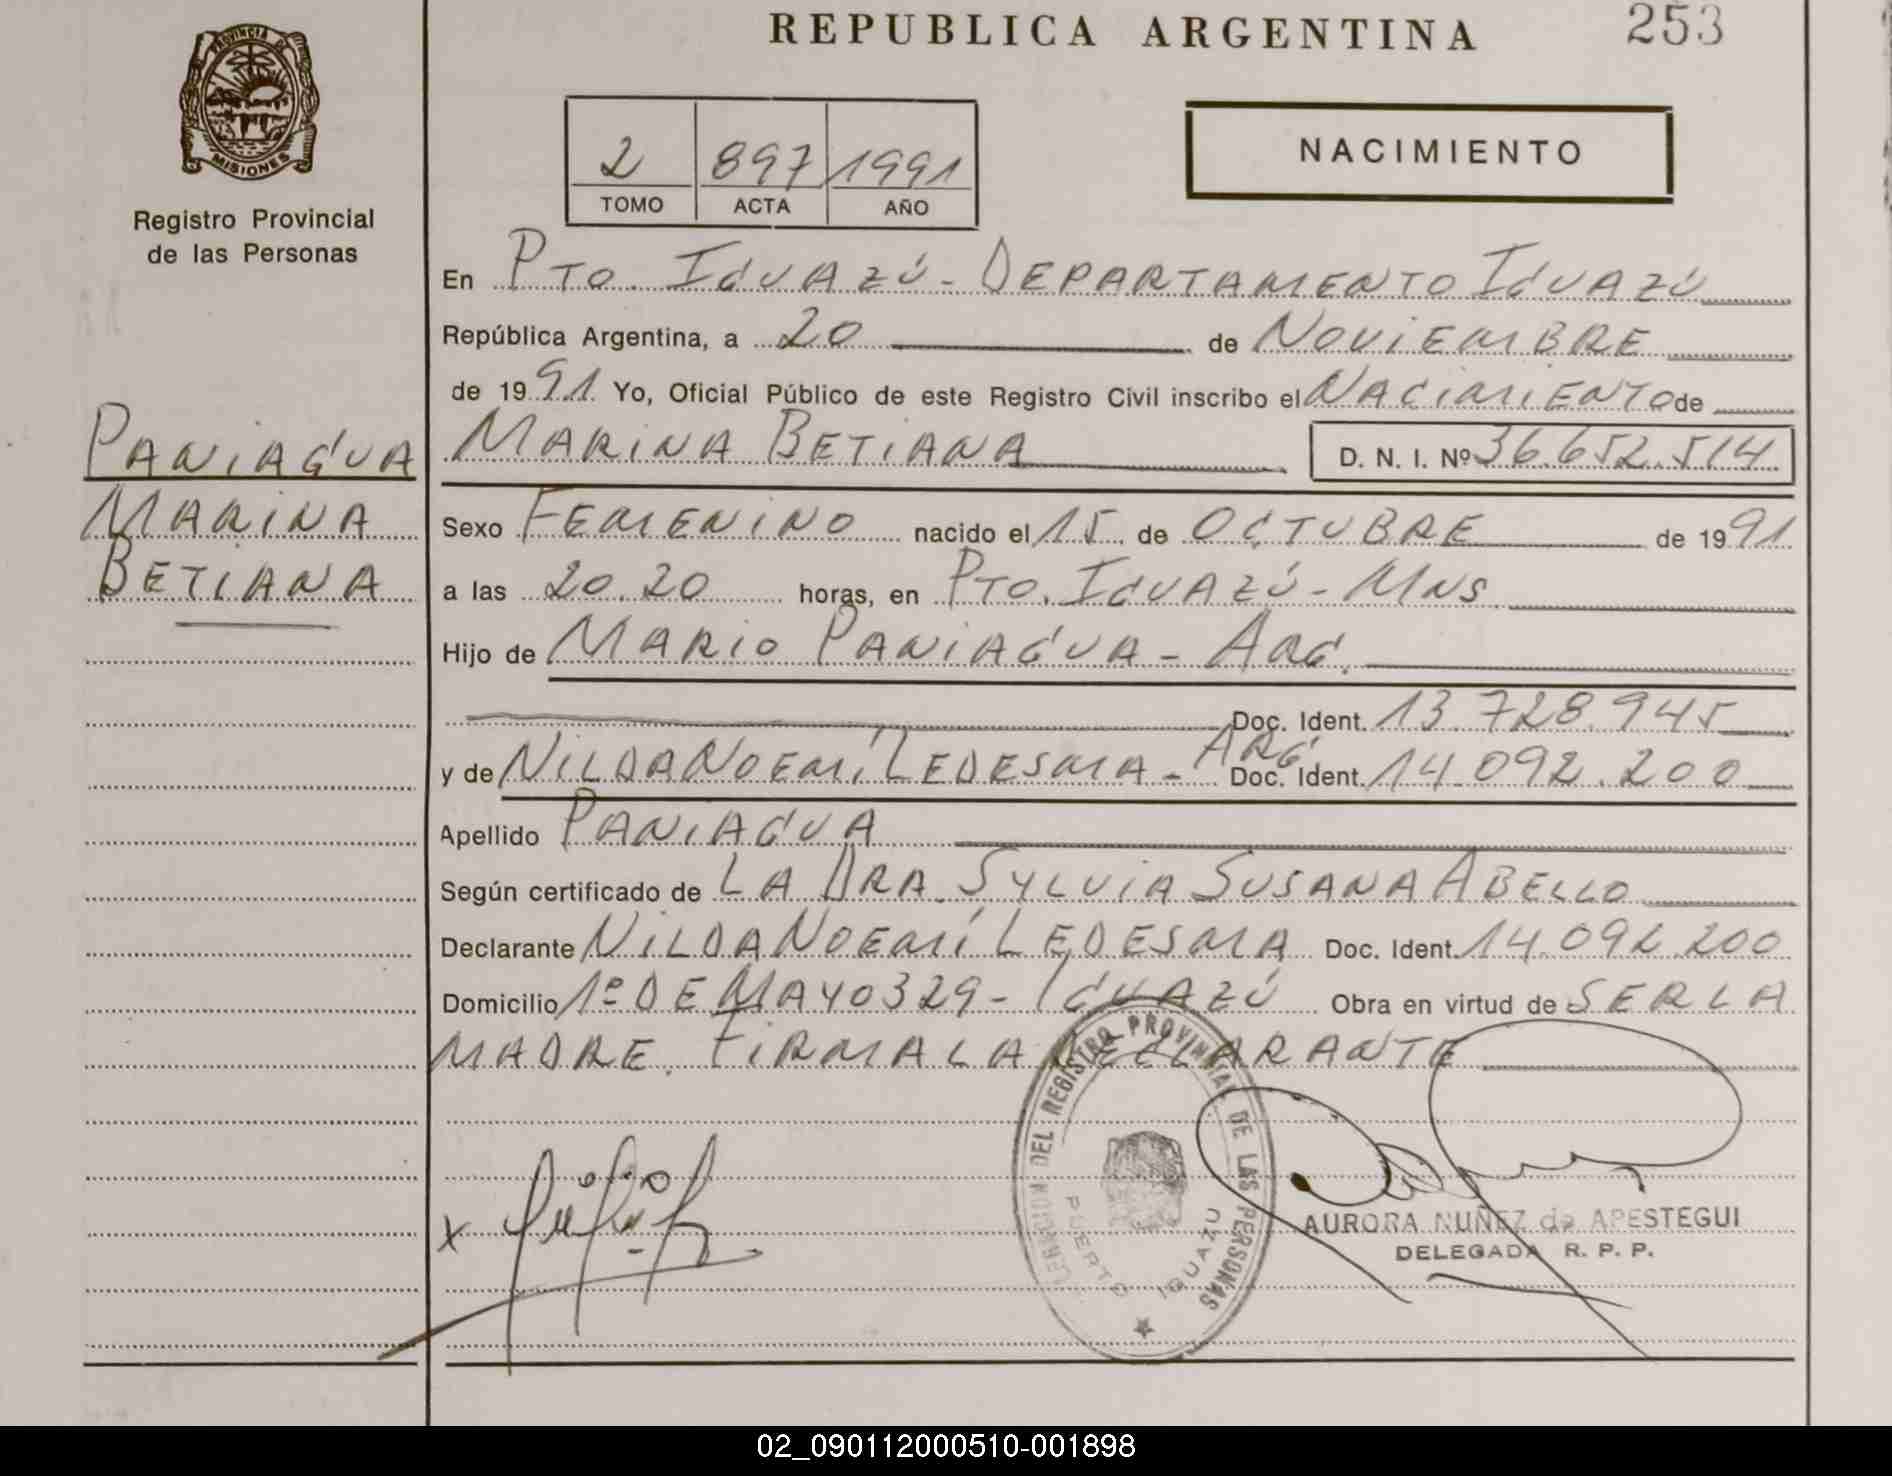 REPUBLICA ARGENTINA
253
PROVINCIA DE
MISIONES
Registro Provincial
de las Personas
2 897 1991
TOMO ACTA AÑO
NACIMIENTO
En PTO. IGUAZÚ - DEPARTAMENTO IGUAZÚ
República Argentina, a 20 de NOVIEMBRE
de 1991 Yo, Oficial Público de este Registro Civil inscribo el NACIMIENTO de
PANIAGUA
MARINA
BETIANA
MARINA BETIANA D. N. I. Nº 36.652.514
Sexo FEMENINO nacido el 15 de OCTUBRE de 1991
a las 20.20 horas, en PTO. IGUAZÚ - MNS.
Hijo de MARIO PANIAGUA - ARG.
Doc. Ident. 13.728.945
y de NILDA NOEMÍ LEDESMA - ARG Doc. Ident. 14.092.200
Apellido PANIAGUA
Según certificado de LA DRA. SYLVIA SUSANA ABELLO
Declarante NILDA NOEMÍ LEDESMA Doc. Ident. 14.092.200
Domicilio 1º DE MAYO 329 - IGUAZÚ Obra en virtud de SER LA
MADRE. FIRMA LA DECLARANTE
X
DEL REGISTRO PROVINCIAL DE LAS PERSONAS
PUERTO IGUAZU
AURORA NUÑEZ de APESTEGUI
DELEGADA R. P. P.
02_090112000510-001898